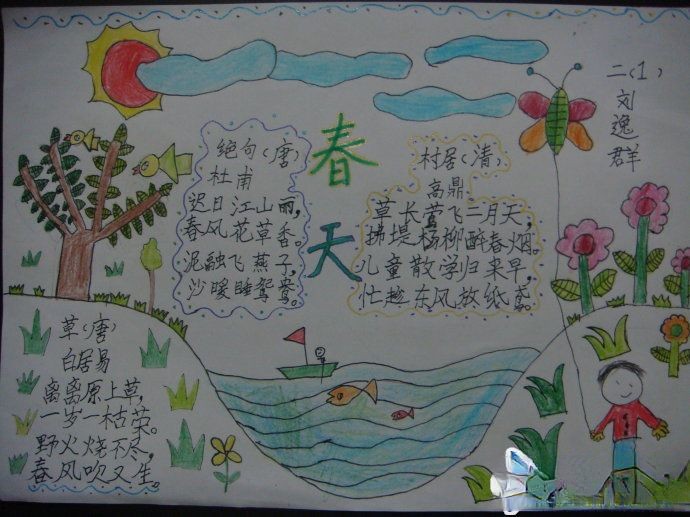 二(1)
刘逸群
春天
绝句(唐)
杜甫
迟日江山丽,
春风花草香。
泥融飞燕子,
沙暖睡鸳鸯。
村居(清)
高鼎
草长莺飞二月天,
拂堤杨柳醉春烟。
儿童散学归来早,
忙趁东风放纸鸢。
草(唐)
白居易
离离原上草,
一岁一枯荣。
野火烧不尽,
春风吹又生。